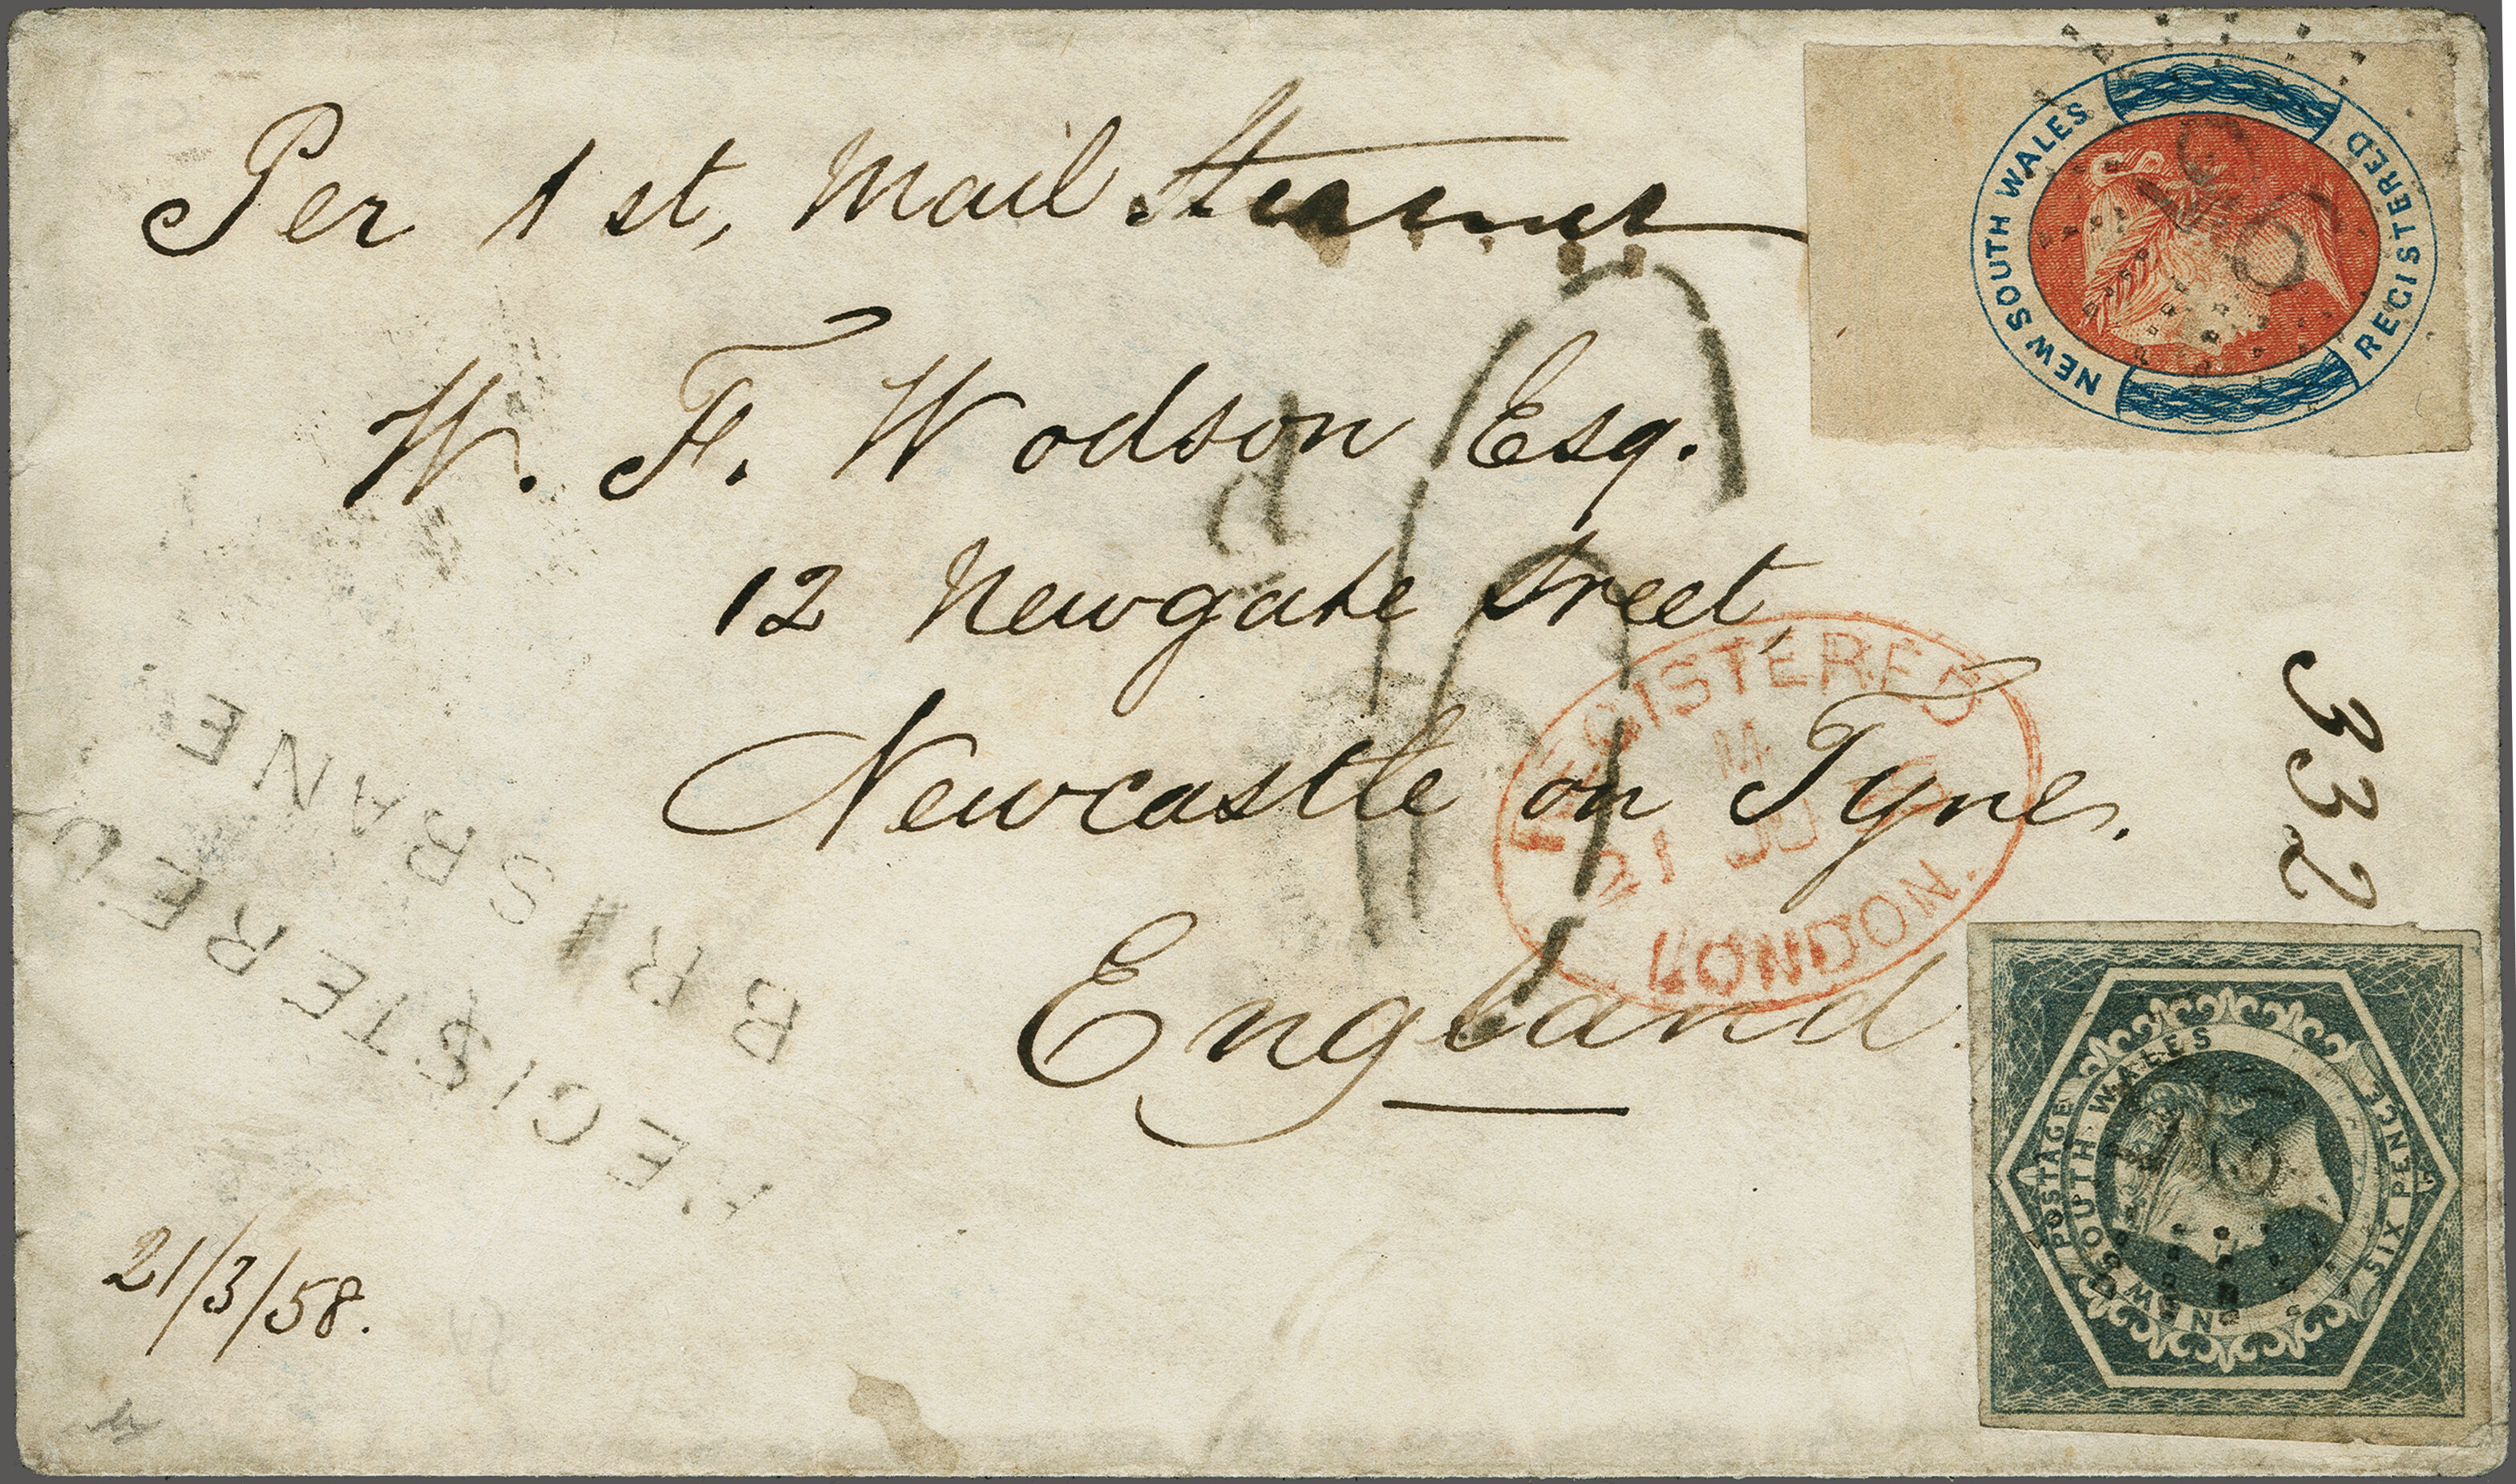 Per 1st, Mail Steamer
W. F. Wodson Esq.
12 Newgate Street,
Newcastle on Tyne.
England.
21/3/58.
332
NEW SOUTH WALES
REGISTERED
POSTAGE
NEW SOUTH WALES
SIX PENCE
REGISTERED
BRISBANE
REGISTERED
21 JU
LONDON.